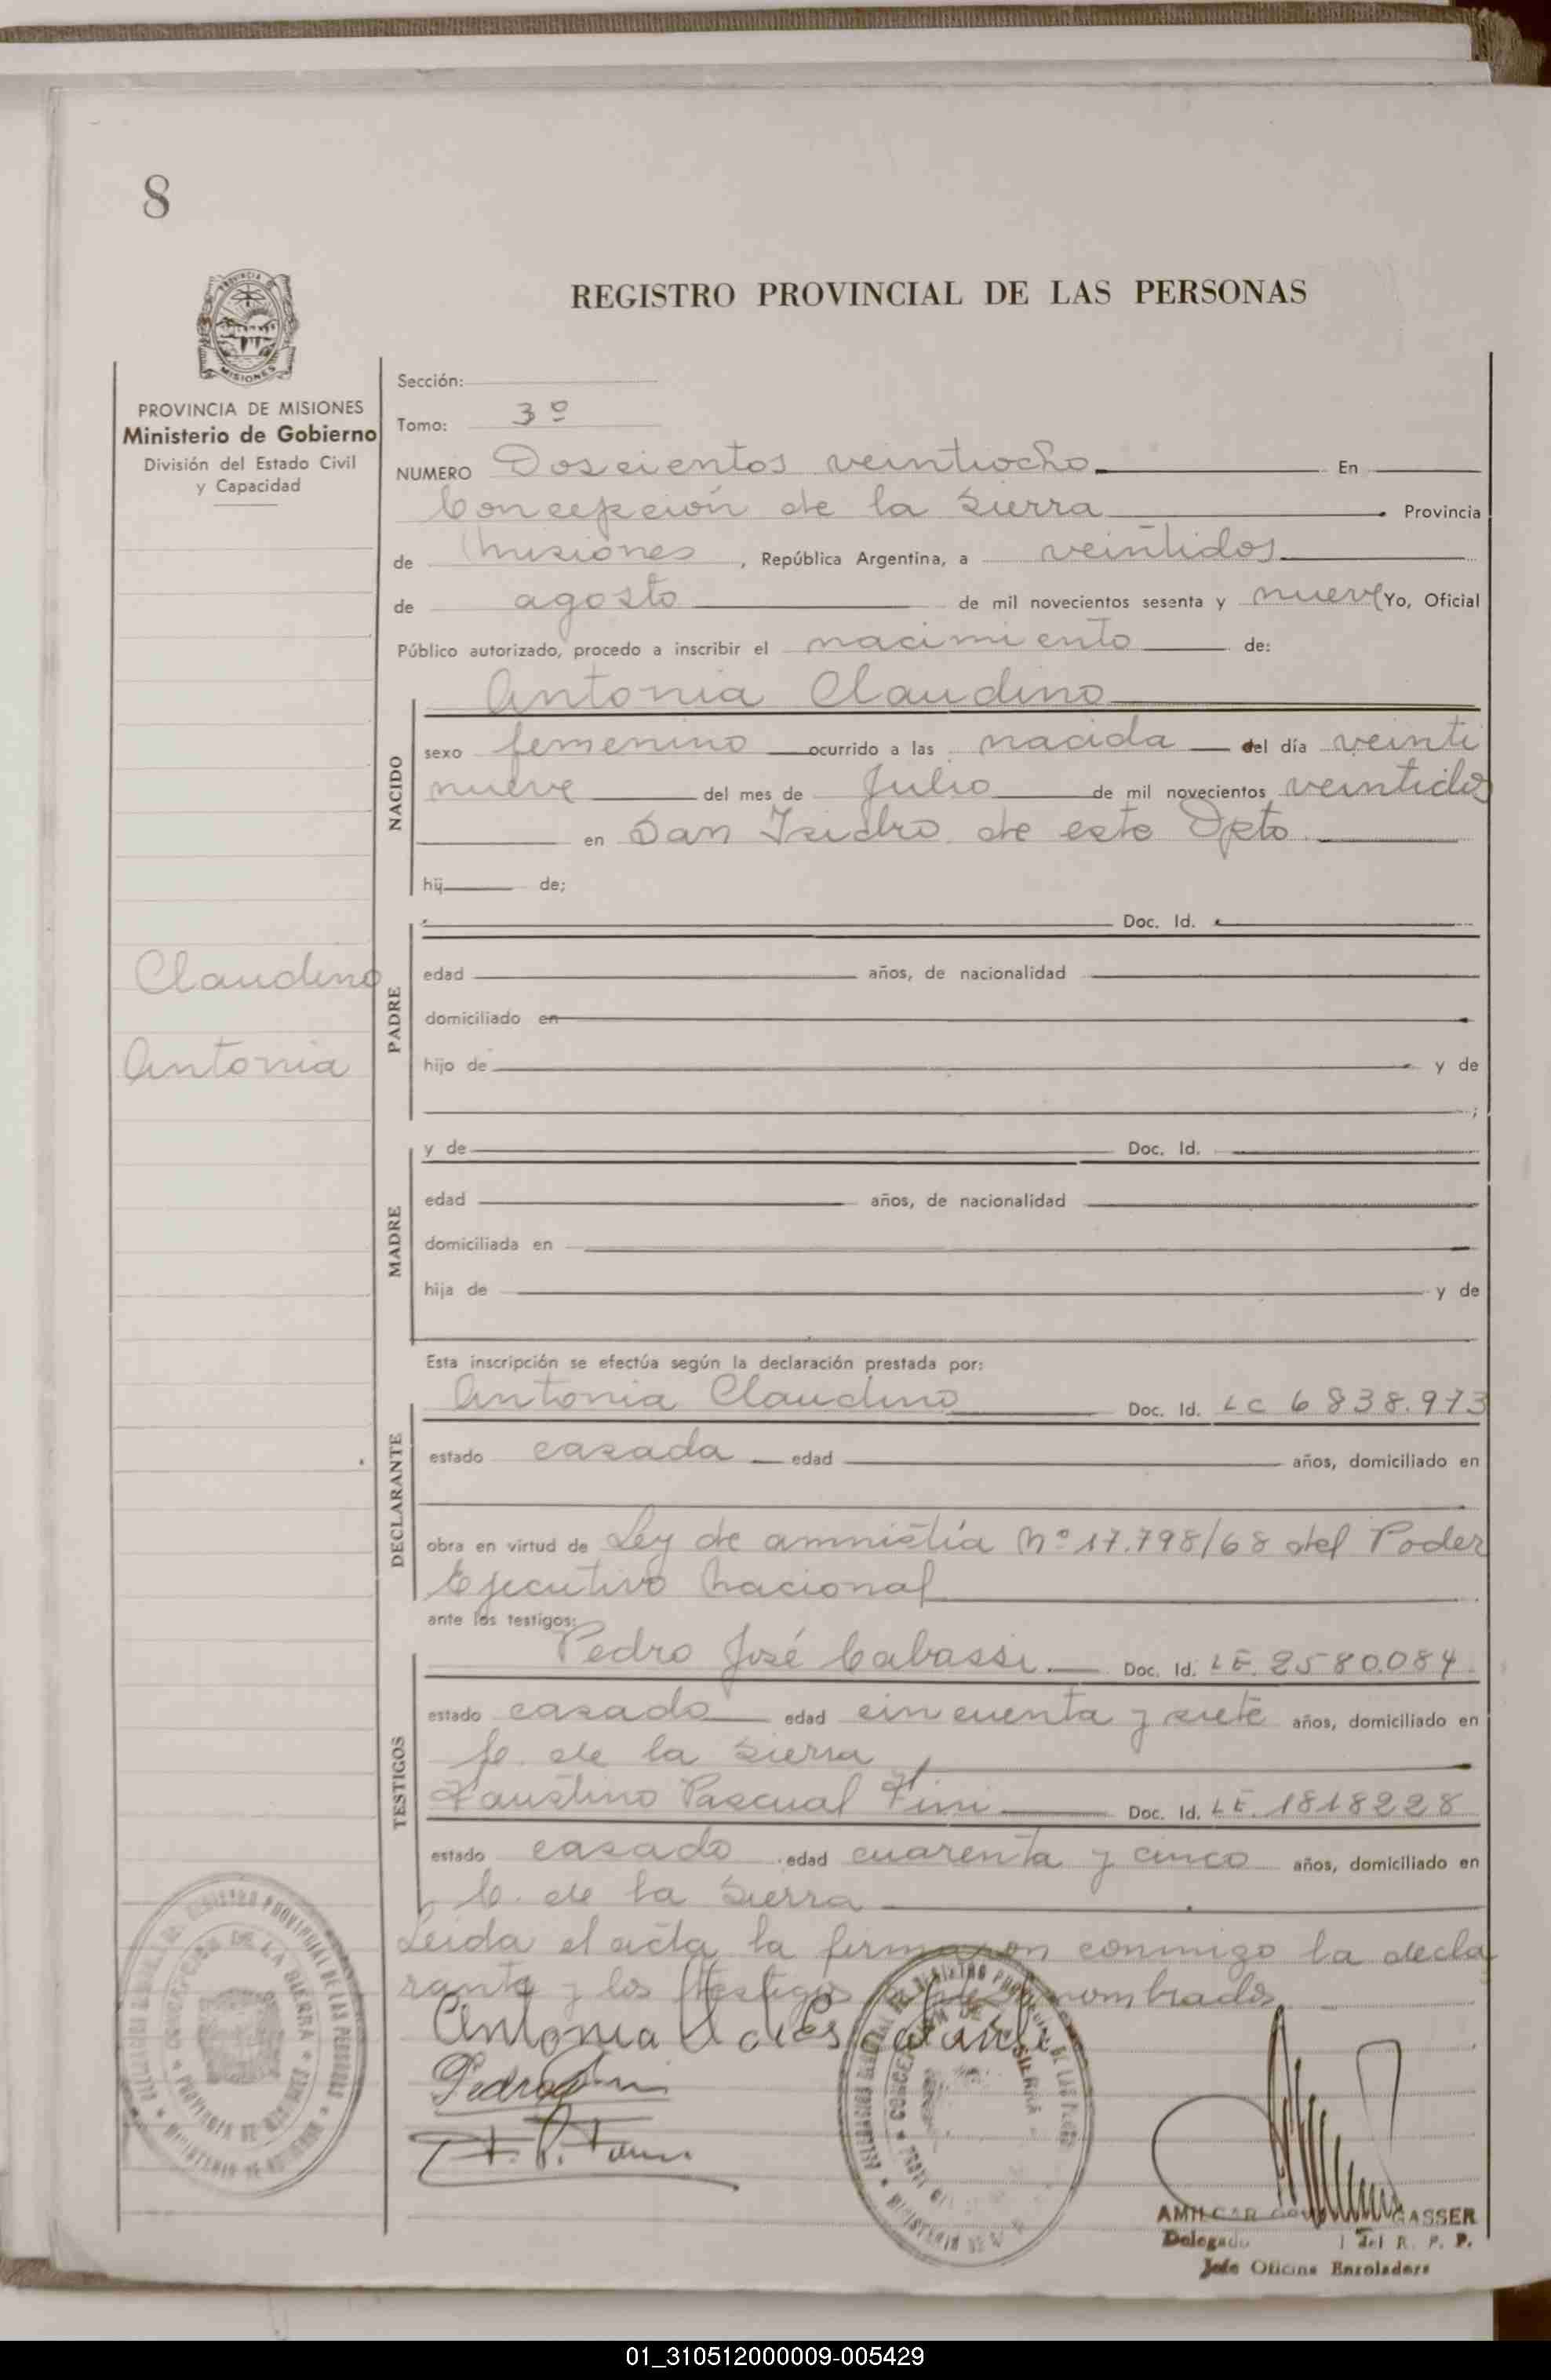 8
REGISTRO PROVINCIAL DE LAS PERSONAS
PROVINCIA
MISIONES
PROVINCIA DE MISIONES
Ministerio de Gobierno
División del Estado Civil
y Capacidad
Sección:
Tomo: 3º
NUMERO Doscientos veintiocho En
Concepción de la Sierra Provincia
de Misiones, República Argentina, a veintidos
de agosto de mil novecientos sesenta y nueve Yo, Oficial
Público autorizado, procedo a inscribir el nacimiento de:
Antonia Claudino
NACIDO
sexo femenino ocurrido a las nacida del día veinti
nueve del mes de Julio de mil novecientos veintidos
en San Isidro de este Dpto
hij de;
Claudino
Antonia
PADRE
Doc. Id.
edad años, de nacionalidad
domiciliado en
hijo de y de
;
MADRE
y de Doc. Id.
edad años, de nacionalidad
domiciliada en
hija de y de
Esta inscripción se efectúa según la declaración prestada por:
DECLARANTE
Antonia Claudino Doc. Id. LC 6838.973
estado casada edad años, domiciliado en
obra en virtud de Ley de amnistía Nº 17.798/68 del Poder
Ejecutivo Nacional
ante los testigos:
TESTIGOS
Pedro José Cabassi Doc. Id. LE. 2580.084
estado casado edad cincuenta y siete años, domiciliado en
C. de la Sierra
Faustino Pascual Fini Doc. Id. LE. 1818228
estado casado edad cuarenta y cinco años, domiciliado en
C. de la Sierra
Leida el acta la firmaron conmigo la decla
rante y los testigos nombrados
Antonia
Pedro
F. P.
REGISTRO PROVINCIAL DE LAS PERSONAS
CONCEPCION DE LA SIERRA
PROVINCIA DE MISIONES
MINISTERIO DE GOBIERNO
AMILCAR GASSER
Delegado del R. P. P.
Jefe Oficina Enroladora
01_310512000009-005429